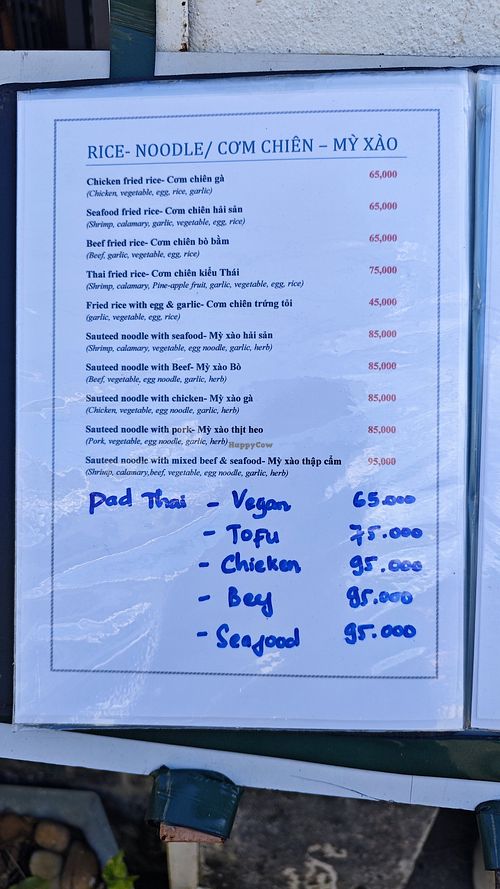 RICE- NOODLE/ CƠM CHIÊN – MỲ XÀO
Chicken fried rice- Cơm chiên gà 65,000
(Chicken, vegetable, egg, rice, garlic)
Seafood fried rice- Cơm chiên hải sản 65,000
(Shrimp, calamary, garlic, vegetable, egg, rice)
Beef fried rice- Cơm chiên bò bằm 65,000
(Beef, garlic, vegetable, egg, rice)
Thai fried rice- Cơm chiên kiểu Thái 75,000
(Shrimp, calamary, Pine-apple fruit, garlic, vegetable, egg, rice)
Fried rice with egg & garlic- Cơm chiên trứng tỏi 45,000
(garlic, vegetable, egg, rice)
Sauteed noodle with seafood- Mỳ xào hải sản 85,000
(Shrimp, calamary, vegetable, egg noodle, garlic, herb)
Sauteed noodle with Beef- Mỳ xào Bò 85,000
(Beef, vegetable, egg noodle, garlic, herb)
Sauteed noodle with chicken- Mỳ xào gà 85,000
(Chicken, vegetable, egg noodle, garlic, herb)
Sauteed noodle with pork- Mỳ xào thịt heo 85,000
(Pork, vegetable, egg noodle, garlic, herb)
HappyCow
Sauteed noodle with mixed beef & seafood- Mỳ xào thập cẩm 95,000
(Shrimp, calamary,beef, vegetable, egg noodle, garlic, herb)
Pad Thai - Vegan 65.000
- Tofu 75.000
- Chicken 95.000
- Bey 95.000
- Seafood 95.000